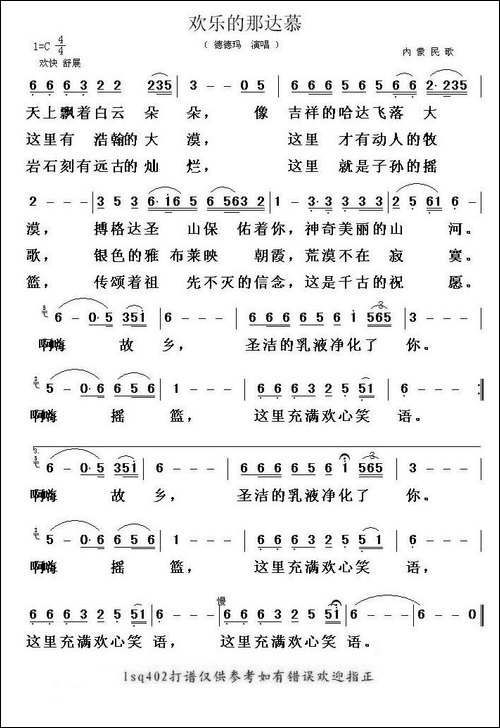 欢乐的那达慕
1=C 4/4
（ 德德玛 演唱 ）
内 蒙 民 歌
欢快 舒展
6 6 6 3 2 2 235 3 - - 6 6 6 6 5 6 1 6 6 2· 235
天上飘着白云 朵 朵， 像 吉祥的哈达飞落 大
这里有 浩瀚的大 漠， 这里 才有动人的牧
岩石刻有远古的灿 烂， 这里 就是子孙的摇
漠， 搏格达圣 山保 佑着你，神奇美丽的山 河。
歌， 银色的雅 布莱映 朝霞，荒漠不在 寂 寞。
篮， 传颂着祖 先不灭的信念，这是千古的祝 愿。
6 - 0· 5 351 6 - - - 6 6 6 6 5 6 1 565 3 - - -
啊嗨 故 乡， 圣洁的乳液净化了 你。
5 - 0· 6 6 5 6 1 - - - 6 6 6 3 2 5 51 6 - - - :
啊嗨 摇 篮， 这里充满欢心笑 语。
6 - 0· 5 351 6 - - - 6 6 6 6 5 6 1 565 3 - - -
啊嗨 故 乡， 圣洁的乳液净化了 你。
5 - 0· 6 6 5 6 1 - - - 6 6 6 3 2 5 51 6 - - -
啊嗨 摇 篮， 这里充满欢心笑 语，
慢
6 6 6 3 2 5 51 6 - - - 6 6 6 3 2 5 51 6 - - -
这里充满欢心笑 语，这里充满欢心笑 语。
lsq402打谱仅供参考如有错误欢迎指正